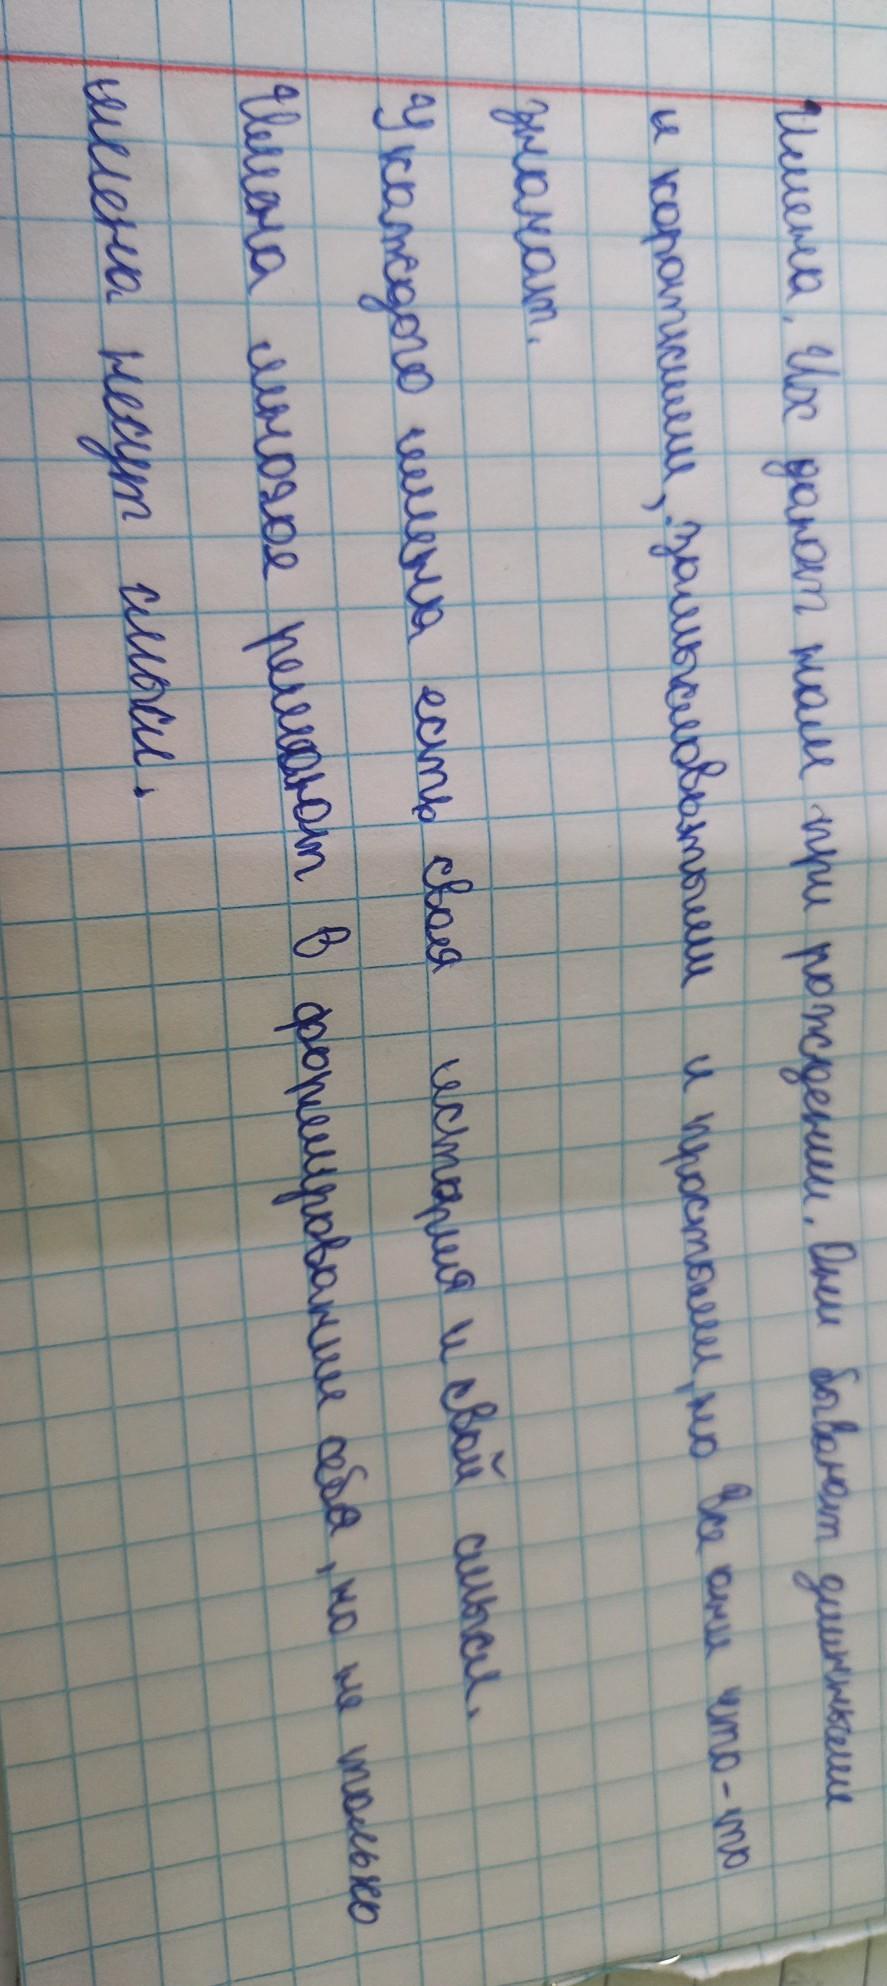 Имена. Их дают нам при рождении. Они бывают длинными
и короткими, замысловатыми и простыми, но все они что-то
значат.
У каждого имена есть своя история и свой смысл.
Имена многое решают в формировании себя, но не только
имена несут смысл.